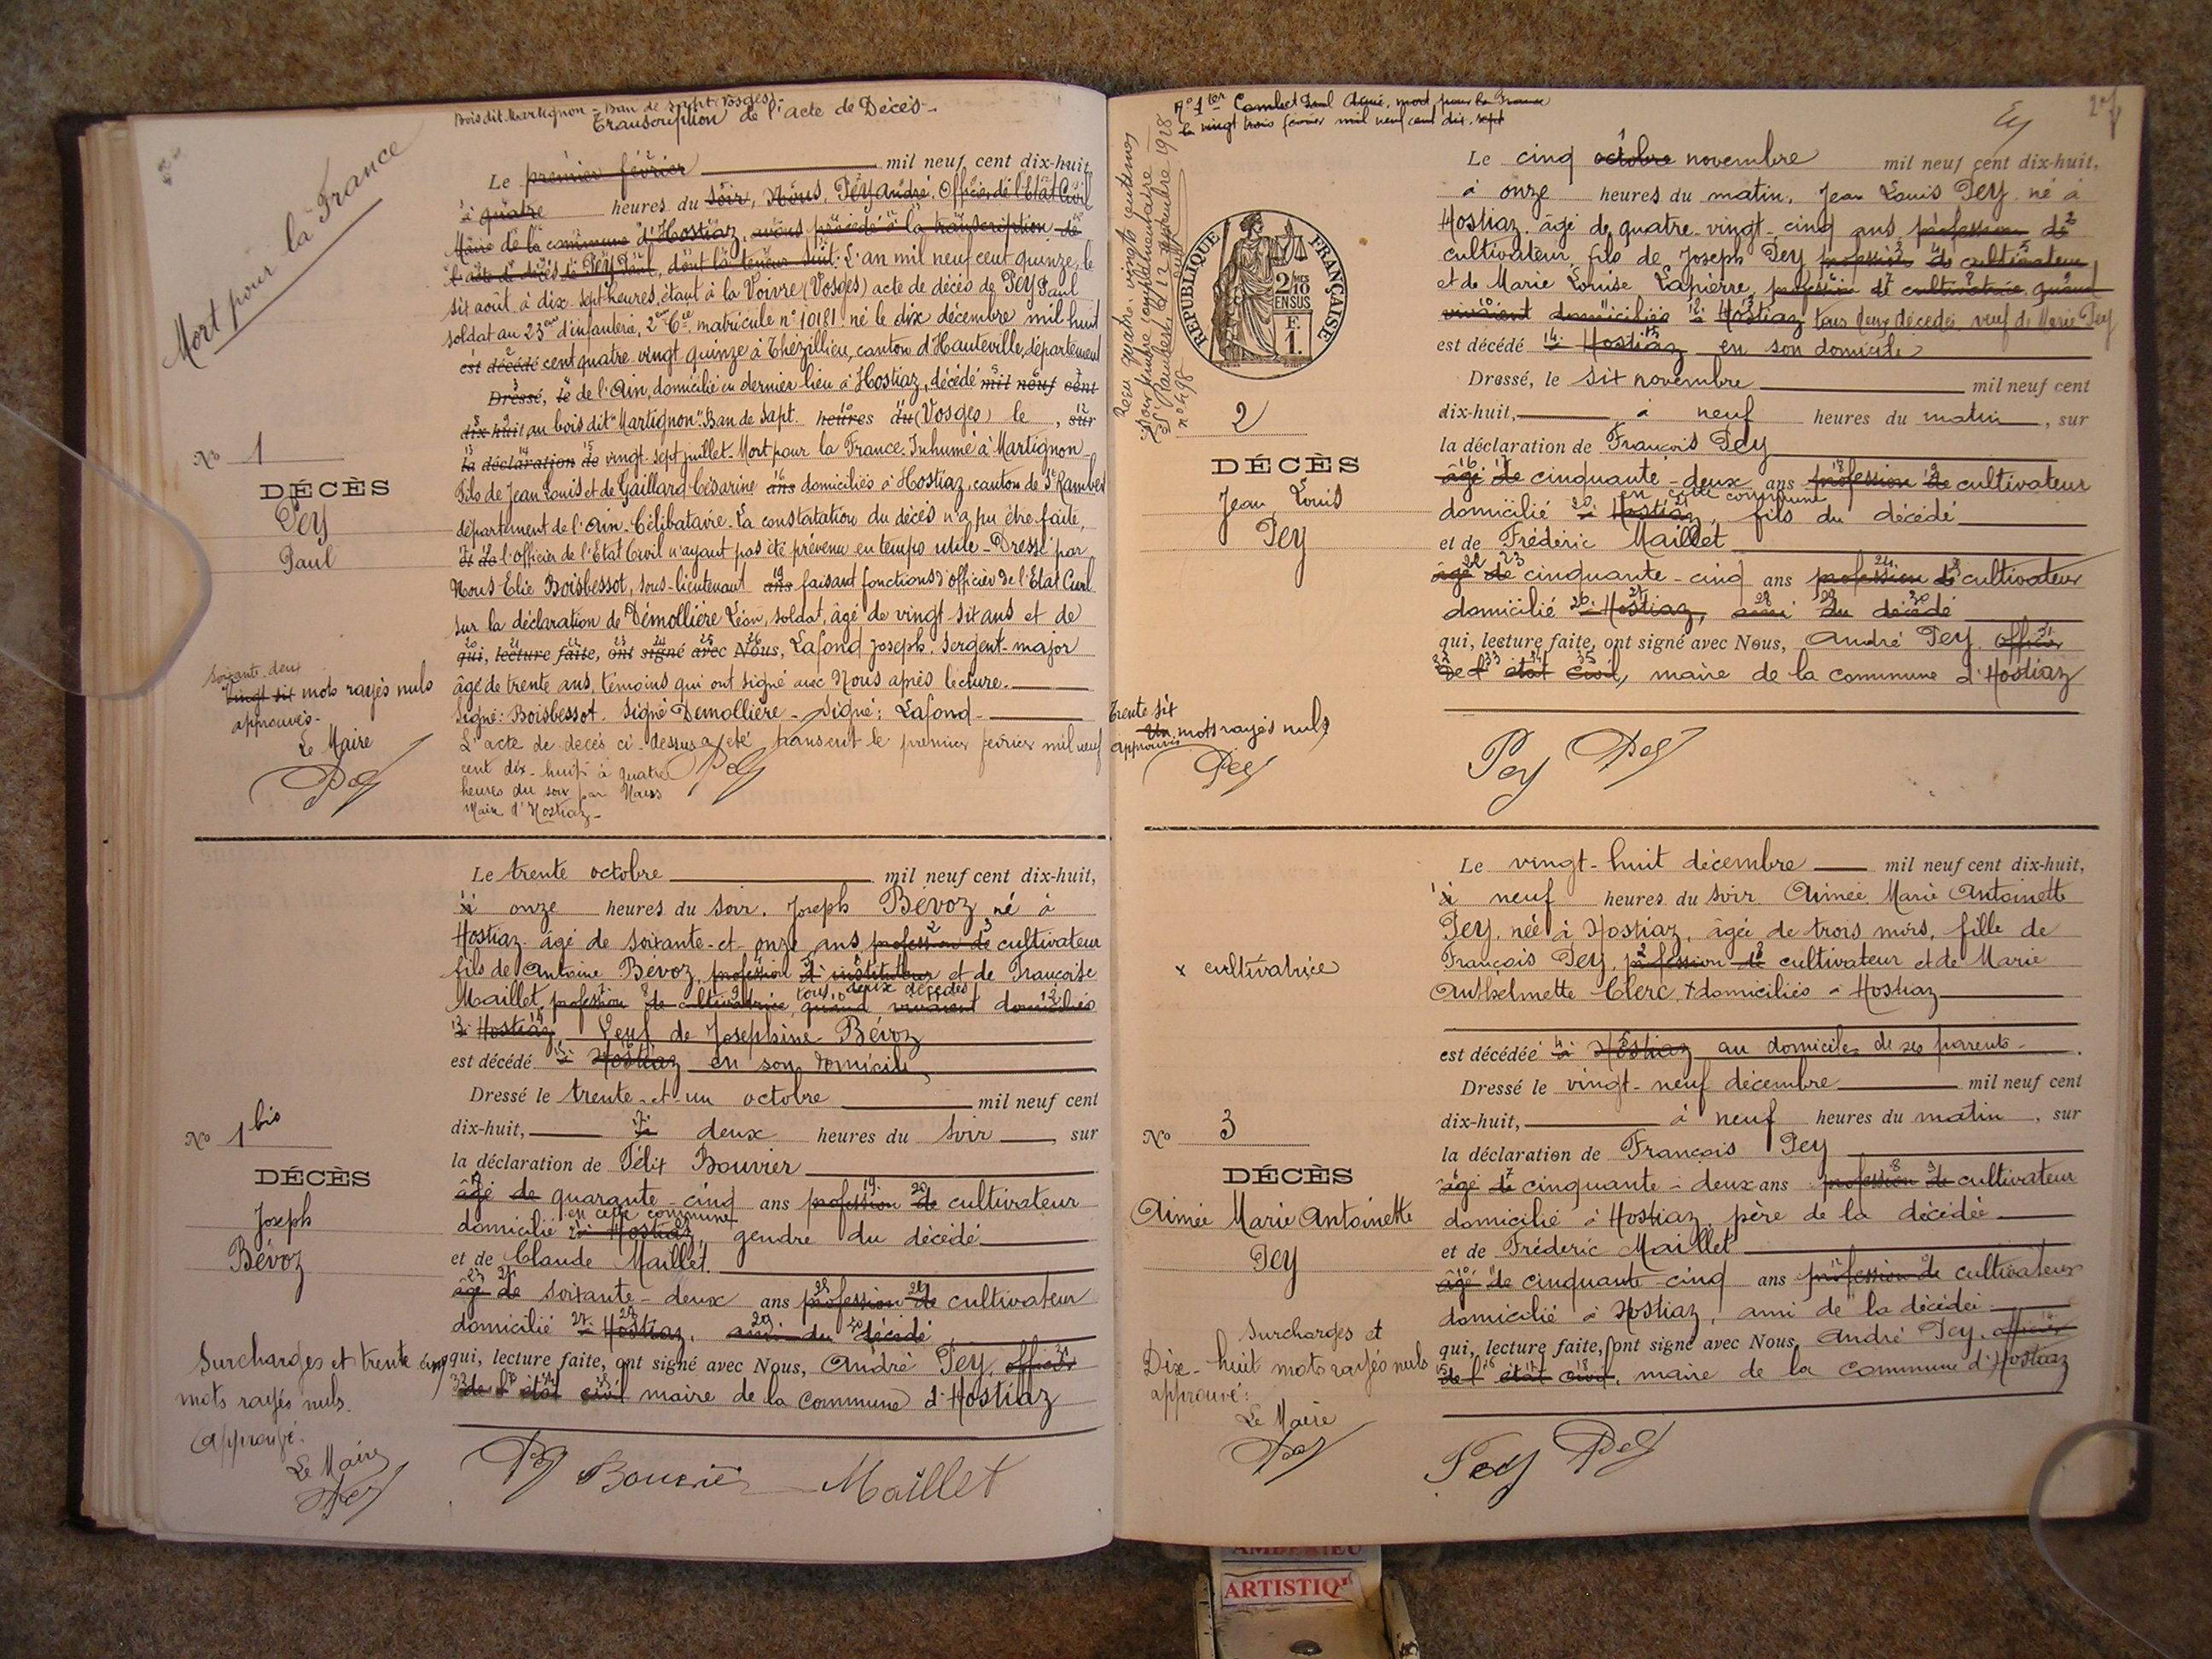 Bois dit Martignon - Ban de Sapt (Vosges).
Transcription de l'acte de Décès.
Mort pour la France
Le premier février mil neuf cent dix-huit,
à quatre heures du soir, Nous, Pey André, Officier de l'Etat Civil
Maire de la commune d'Hostiaz, avons procédé à la transcription de
l'acte de décès de Pey Paul, dont la teneur suit: L'an mil neuf cent quinze, le
six août à dix-sept heures, étant à la Voivre (Vosges) acte de décès de Pey Paul
soldat au 23eme d'infanterie, 2eme Cie, matricule n° 10181 né le dix décembre mil huit
est décédé cent quatre vingt quinze à Thézillieu, canton d'Hauteville, département
Dressé, le de l'Ain, domicilié en dernier lieu à Hostiaz, décédé mil neuf cent
dix-huit, au bois dit "Martignon" Ban de Sapt. heures du (Vosges) le , sur
la déclaration de vingt-sept juillet. Mort pour la France. Inhumé à Martignon
Fils de Jean Louis et de Gaillard Césarine ans domiciliés à Hostiaz, canton de St Rambert
département de l'Ain. Célibataire. La constatation du décès n'a pu être faite,
et de l'officier de l'Etat Civil n'ayant pas été prévenu en temps utile - Dressé par
Nous Elie Boisbessot, sous-lieutenant ans faisant fonctions d'officier de l'Etat Civil
sur la déclaration de Démollière Léon, soldat, âgé de vingt-six ans et de
qui, lecture faite, ont signé avec Nous, Lafond Joseph. Sergent-major
âgé de trente ans, témoins qui ont signé avec Nous après lecture.
Signé: Boisbessot. Signé Demollière - Signé: Lafond.
L'acte de decès ci-dessus a été transcrit le premier février mil neuf
cent dix-huit à quatre
heures du soir par Nous
Maire d'Hostiaz.
Pey
No 1
DÉCÈS
Pey
Paul
Soixante deux
vingt six mots rayés nuls
approuvés.
Le Maire
Pey
Le trente octobre mil neuf cent dix-huit,
à onze heures du soir. Joseph Bévoz né à
Hostiaz âgé de soixante-et-onze ans profession de cultivateur
fils de Antoine Bévoz, profession d'instituteur et de Françoise
tous deux décédés
Maillet, profession de cultivatrice, quand vivaient domiciliés
à Hostiaz, Veuf de Josephine Bévoz
est décédé à Hostiaz en son domicile
Dressé le trente-et-un octobre mil neuf cent
dix-huit, à deux heures du soir, sur
la déclaration de Félix Bouvier
âgé de quarante-cinq ans profession de cultivateur
en cette commune
domicilié à Hostiaz, gendre du décédé
et de Claude Maillet.
âgé de soixante-deux ans profession de cultivateur
domicilié à Hostiaz, ami du décédé
qui, lecture faite, ont signé avec Nous, André Pey, officier
de l'état civil maire de la Commune d'Hostiaz
Pey Bouvier Maillet
No 1 bis
DÉCÈS
Joseph
Bévoz
Surcharges et trente cinq
mots rayés nuls.
Approuvé.
Le Maire
Pey
No 1er Combet Paul Aimé, mort pour la France
le vingt trois février mil neuf cent dix-sept
2
RÉPUBLIQUE FRANÇAISE
2/10 EN SUS
F.
1.
2
DÉCÈS
Jean Louis
Pey
Trente six
Un mots rayés nuls
approuvés
Pey
Le cinq octobre novembre mil neuf cent dix-huit,
à onze heures du matin, Jean Louis Pey né à
Hostiaz. âgé de quatre-vingt-cinq ans profession de
cultivateur, fils de Joseph Pey profession de cultivateur
et de Marie Louise Lapierre, profession de cultivatrice quand
vivaient domiciliés à Hostiaz tous deux décédés, veuf de Marie Pey
est décédé à Hostiaz en son domicile
Dressé, le six novembre mil neuf cent
dix-huit, à neuf heures du matin, sur
la déclaration de François Pey
âgé de cinquante-deux ans profession de cultivateur
en cette commune
domicilié à Hostiaz, fils du décédé
et de Frédéric Maillet
âgé de cinquante-cinq ans profession de cultivateur
domicilié à Hostiaz, ami du décédé
qui, lecture faite, ont signé avec Nous, André Pey. Officier
de l'état civil, maire de la commune d'Hostiaz
Pey Pey
Le vingt-huit décembre mil neuf cent dix-huit,
à neuf heures du soir Aimée Marie Antoinette
Pey, née à Hostiaz, âgée de trois mois, fille de
François Pey, profession de cultivateur et de Marie
Anthelmette Clerc, x domiciliés à Hostiaz
x cultivatrice
est décédée à Hostiaz au domicile de ses parents.
Dressé le vingt-neuf décembre mil neuf cent
dix-huit, à neuf heures du matin, sur
la déclaration de François Pey
âgé de cinquante-deux ans profession de cultivateur
domicilié à Hostiaz, père de la décédée
et de Fréderic Maillet
âgé de cinquante-cinq ans profession de cultivateur
domicilié à Hostiaz, ami de la décédée
qui, lecture faite, ont signé avec Nous, André Pey, officier
de l'état civil, maire de la commune d'Hostiaz
Pey Pey
No 3
DÉCÈS
Aimée Marie Antoinette
Pey
Surcharges et
Dix-huit mots rayés nuls
approuvé:
Le Maire
Pey
ARTISTIQ